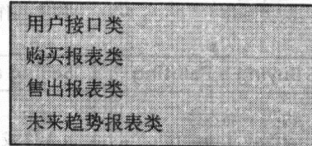 用户接口类
购买报表类
售出报表类
未来趋势报表类